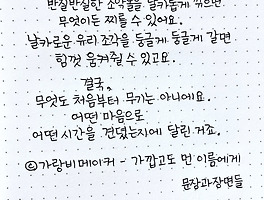 반질반질한 조약돌을 날카롭게 깎으면
무엇이든 찌를 수 있어요.
날카로운 유리 조각을 둥글게 둥글게 갈면
힘껏 움켜쥘 수 있고요.
결국,
무엇도 처음부터 무기는 아니에요.
어떤 마음으로
어떤 시간을 건넜는지에 달린 거죠.
©가랑비메이커 - 가깝고도 먼 이름에게
문장과장면들